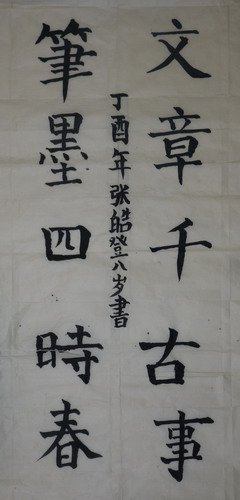 文章千古事
丁酉年张皓登八岁書
筆墨四時春